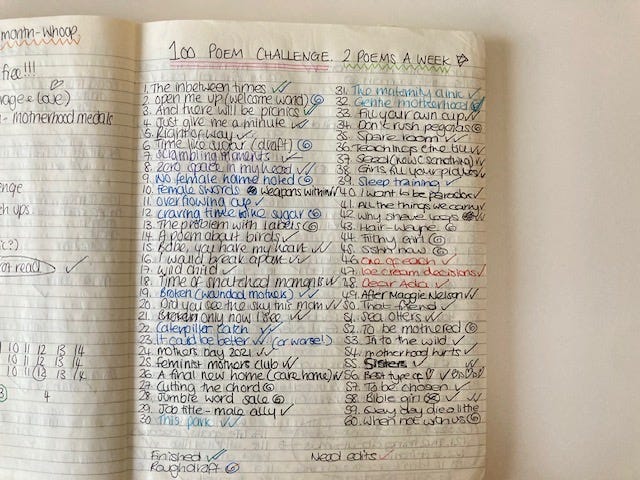 month-whoop
free!!!
- motherhood medals
ch ups
ot read
10 11 12 13 14
10 11 12 13 14
10 11 13 14
4
100 POEM CHALLENGE. 2 POEMS A WEEK
1. The inbetween times
2. open me up (welcome world)
3. And there will be picnics
4. Just give me a minute
5. Right of way
6. Time like sugar (draft)
7. Scrambling Parents
8. zero space in my head
9. No female name noted
10. Female swords weapons within
11. overflowing cup
12. craving time like sugar
13. The problem with labels
14. A poem about birds
15. Babe, you have my heart
16. I would break apart
17. Wild child
18. Time of snatched moments
19. Broken (wounded mothers)
20. Did you see the sky this morn
21. only now I see
22. Caterpillar catch
23. It could be better (or worse!)
24. mothers day 2021
25. feminist mothers club
26. A final new home (care home)
27. Cutting the chord
28. Jumble word sale
29. Job title - male ally
30. This park
31. The maternity clinic
32. Gentle motherhood
33. Fill your own cup
34. Don't rush pegasus
35. Spare room
36. Teachings of the till
37. Stead (new c something)
38. Girls fill your plates
39. Sleep training
40. I want to be
41. All the things we carry
42. Why shave legs
43. Hair-wayne
44. Filthy girl
45. Sshh now
46. One of each
47. Ice cream decisions
48. Dear Ada
49. After Maggie Nelson
50. That friend
51. Sea otters
52. To be mothered
53. In to the wild
54. motherhood hurts
55. Sisters
56. Best type of
57. To be chosen
58. Bible girl
59. Every day die a little
60. When not with us
Finished
Need edits
Rough draft